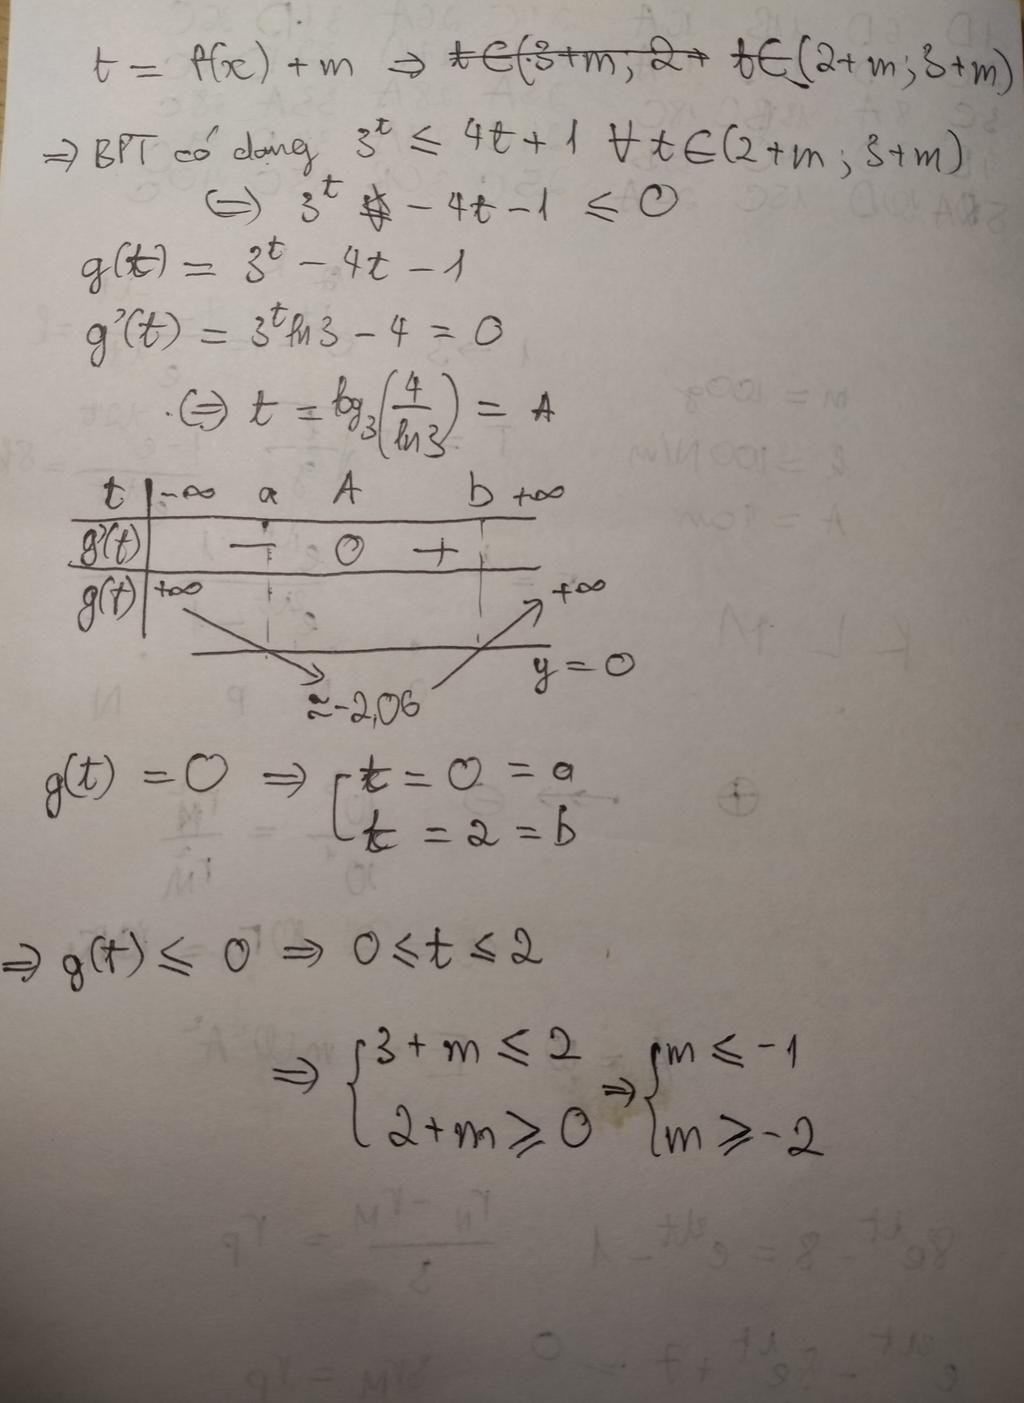 t = f(x) + m ⇒ t∈(3+m; 2+ t∈(2+m; 3+m)
⇒ BPT có dạng 3^t ≤ 4t + 1 ∀ t∈(2+m; 3+m)
⇔ 3^t - 4t - 1 ≤ 0
g(t) = 3^t - 4t - 1
g'(t) = 3^t ln3 - 4 = 0
⇔ t = log_3(4/ln3) = A
t | -∞ a A b +∞
g'(t) | - 0 +
g(t) | +∞ +∞
y = 0
≈-2,06
g(t) = 0 ⇒ [ t = 0 = a
t = 2 = b
⇒ g(t) ≤ 0 ⇒ 0 ≤ t ≤ 2
⇒ { 3 + m ≤ 2 ⇒ { m ≤ -1
2 + m ≥ 0 m ≥ -2